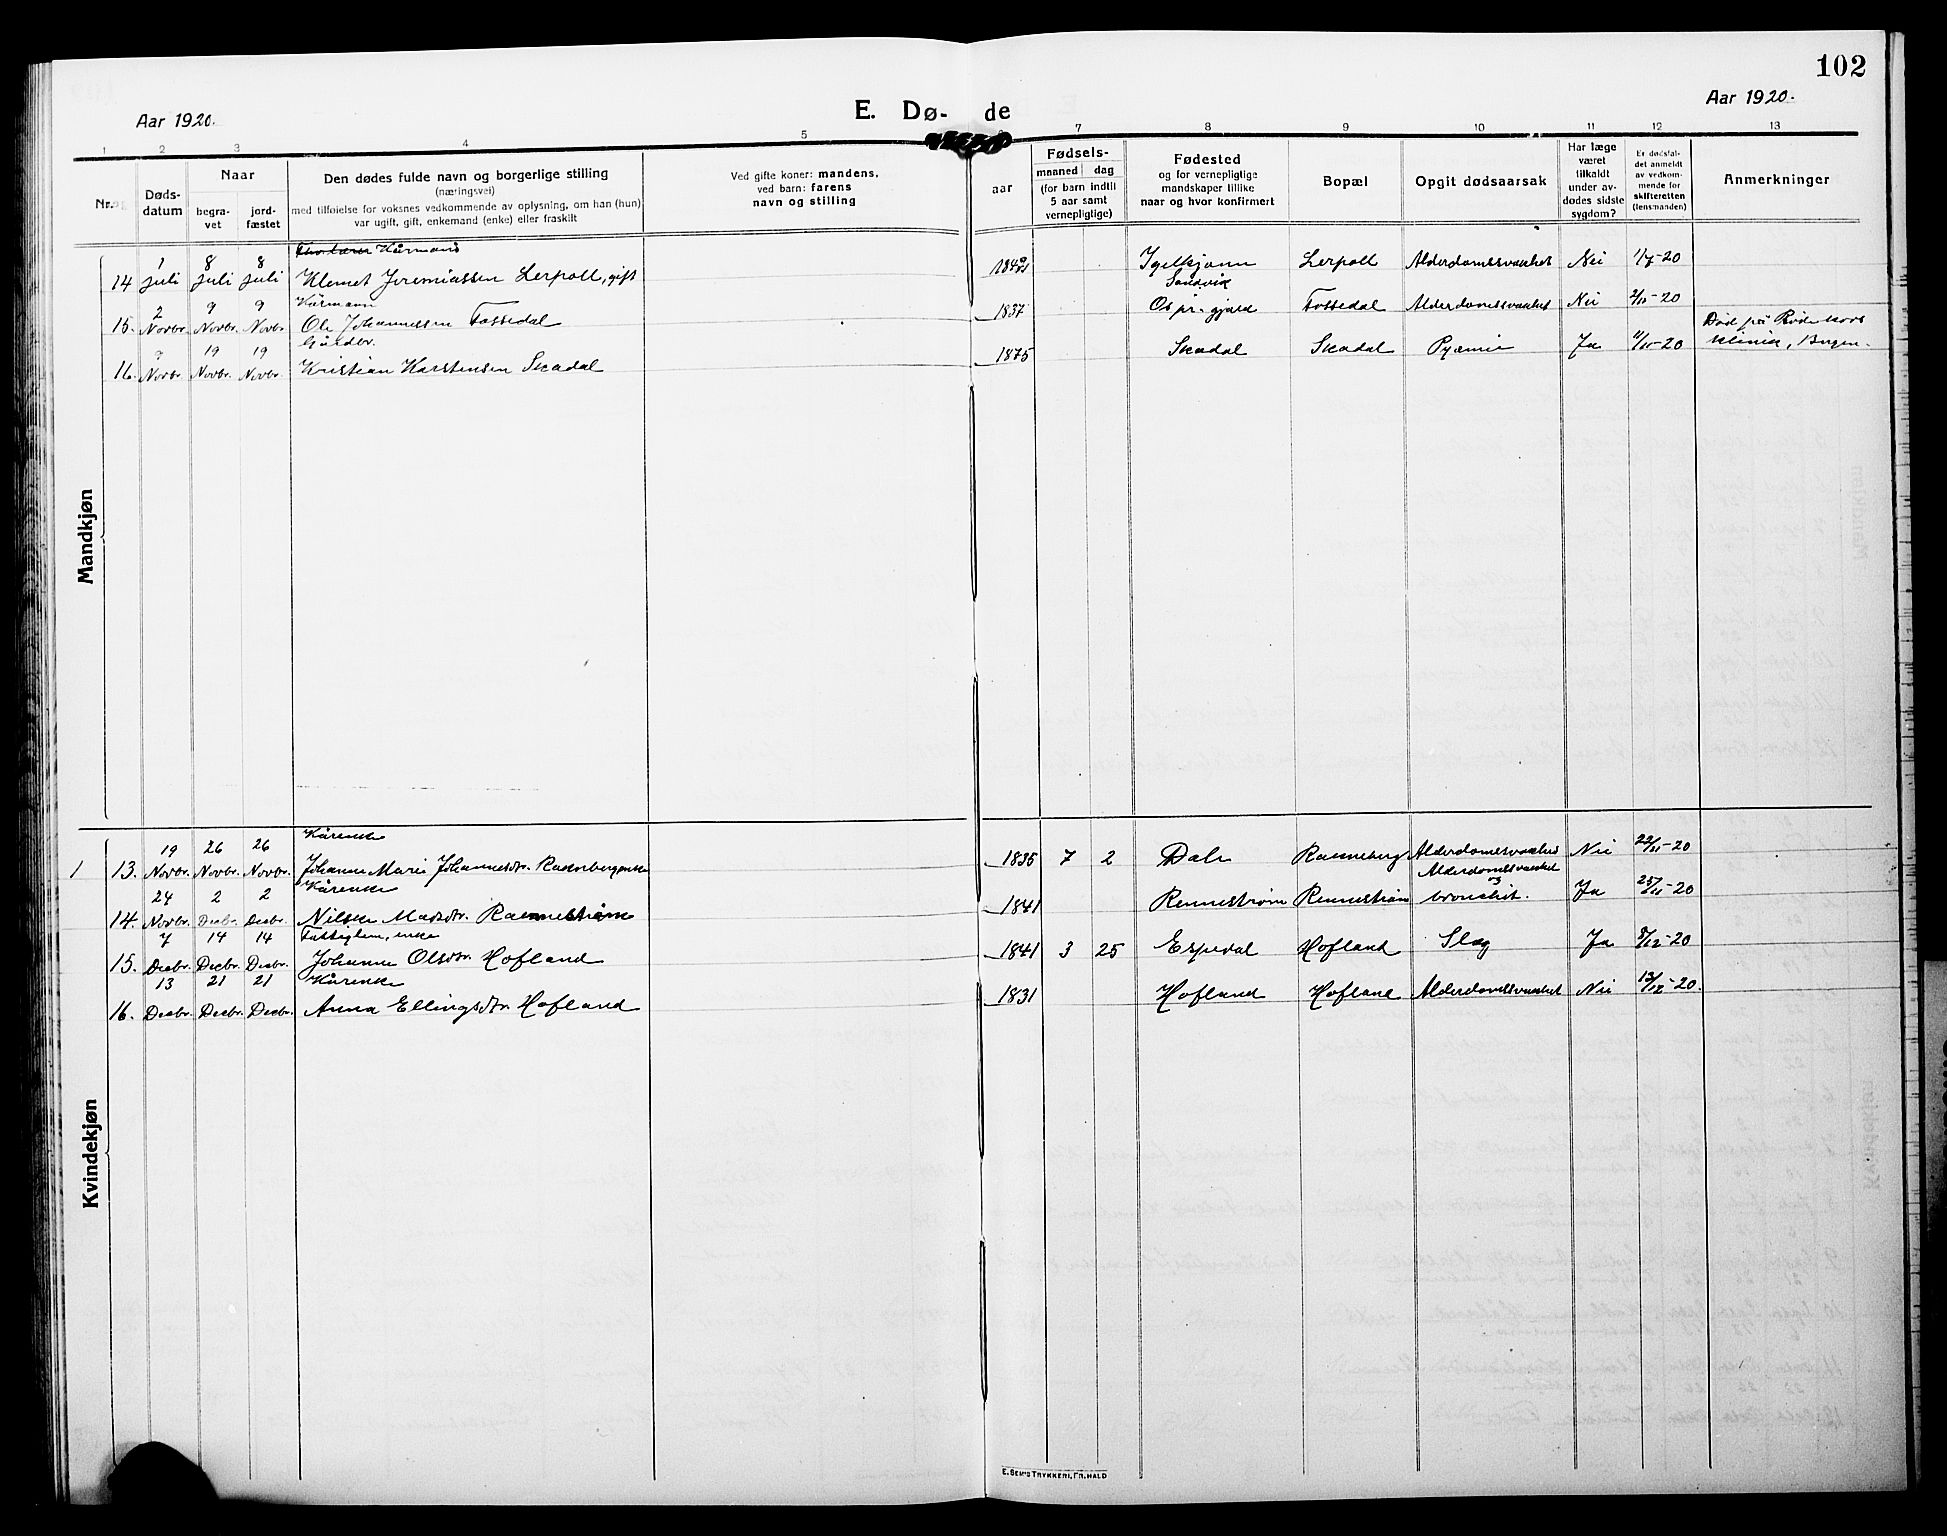 102
Aar 1920.
E. Dø- de
Aar 1920.
1 2 3 4 5 6 7 8 9 10 11 12 13
Nr.
Døds-
datum
Naar
begra-
vet
jord-
fæstet
Den dødes fulde navn og borgerlige stilling
(næringsvei)
med tilføielse for voksnes vedkommende av oplysning, om han (hun)
var ugift, gift, enkemand (enke) eller fraskilt
Ved gifte koner: mandens,
ved barn: farens
navn og stilling
Fødsels-
aar
maaned dag
(for barn indtil
5 aar samt
vernepligtige)
Fødested
og for vernepligtige
mandskaper tillike
naar og hvor konfirmert
Bopæl
Opgit dødsaarsak
Har læge
været
tilkaldt
under av-
dødes sidste
sygdom?
Er dødsfal-
det anmeldt
av vedkom-
mende for
skifteretten
(lensmanden)
Anmerkninger
Mandkjøn
1 8 8 Kårmand
14 Juli Juli Juli Klemet Jeremiassen Lerpoll, gift Sandvik Lerpoll Alderdomssvakhet Nei 1/7-20
2 9 9 Kårmann
15. Novbr. Novbr. Novbr. Ole Johannessen Fossedal 1837 Os pr.gjæld Fossedal Alderdomssvakhet Nei 2/11-20
9 19 19 Gårdbr.
16. Novbr. Novbr. Novbr. Kristian Karstensen Skadal 1875 Skadal Skadal Pyæmie Ja 11/11-20 Død på Røde Kors
Klinik, Bergen.
Kvindekjøn
19 26 26 Kårenke
1 13. Novbr. Novbr. Novbr. Johanne Marie Johannesdtr. 1835 7 2 Dale Ranneberg Alderdomssvakhet Nei 22/11-20
24 2 2 Kårenke
14. Novbr. Decbr. Decbr. Madsdtr. Rennestrøm 1841 Rennestrøm Rennestrøm Alderdomssvakhet og bronchit. Ja 25/11-20
7 14 14 Fattiglem, enke
15. Decbr. Decbr. Decbr. Johanne Olsdtr. Hofland 1841 3 25 Espedal Hofland Slag Ja 8/12-20
13 21 21 Kårenke
16. Decbr. Decbr. Decbr. Anna Ellingsdtr. Hofland 1831 Hofland Hofland Alderdomssvakhet Nei 13/12-20.
E. SEM'S TRYKKERI, FR.HALD